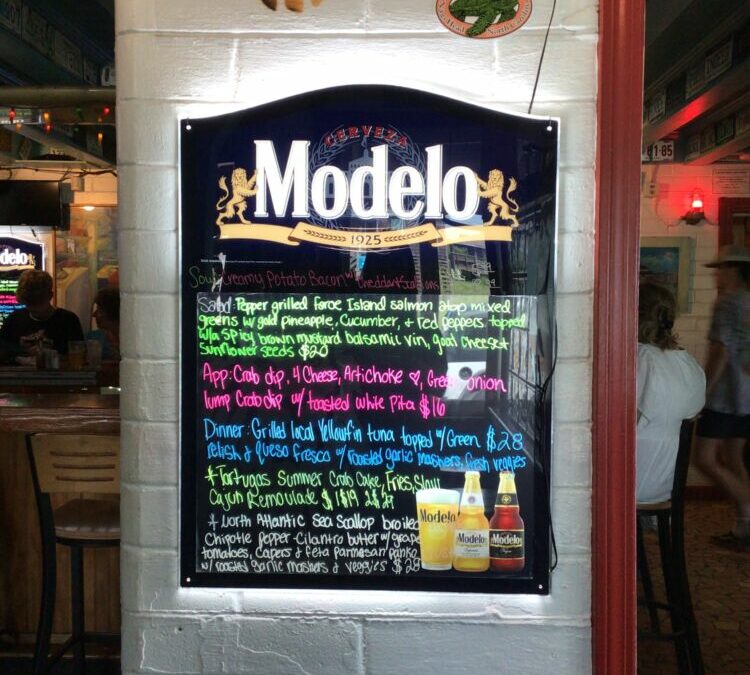 CERVEZA
Modelo
1925
Soup: Creamy Potato Bacon w/ Cheddar & Scallions
Salad: Pepper grilled Faroe Island salmon atop mixed
greens w/ gold pineapple, Cucumber, & red peppers topped
w/a spicy brown mustard balsamic vin, goat cheese &
sunflower seeds $20
App: Crab dip, 4 Cheese, Artichoke ♡, Green onion
lump Crab dip w/ toasted white Pita $16
Dinner: Grilled local Yellowfin tuna topped w/ Green $28
relish & Queso fresco w/ roasted garlic mashers, fresh veggies
* Tortugas Summer Crab Cake, Fries, Slaw
Cajun Remoulade $ 1$19 2$27
* North Atlantic Sea Scallop broiled
Chipotle Pepper-Cilantro butter w/ grape
tomatoes, Capers & feta parmesan panko
w/ roasted garlic mashers & veggies $28
Modelo
Modelo
Modelo
81-85
Modelo